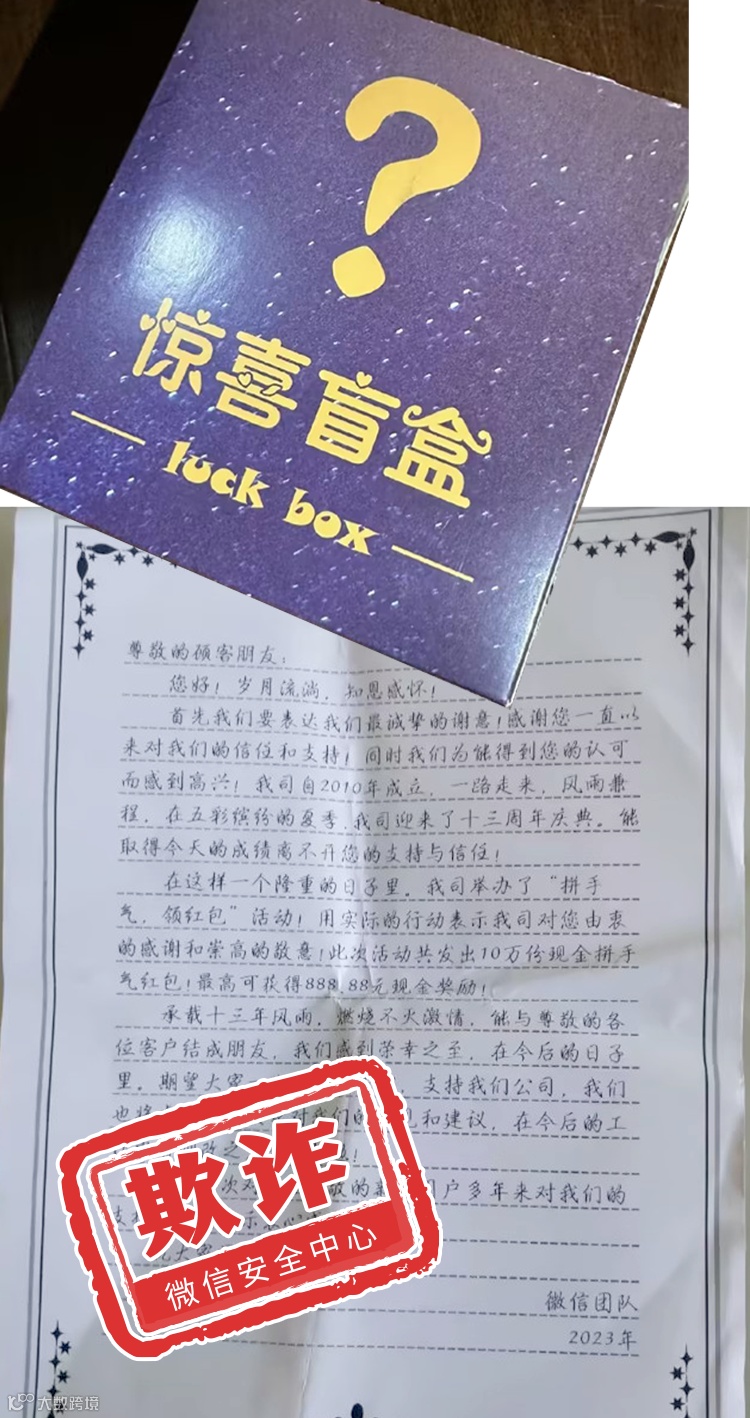 ?
惊喜盲盒
luck box
尊敬的顾客朋友：
您好！岁月流淌，知恩感怀！
首先我们要表达我们最诚挚的谢意！感谢您一直以
来对我们的信任和支持！同时我们为能得到您的认可
而感到高兴！我司自2010年成立，一路走来，风雨兼
程，在五彩缤纷的夏季，我司迎来了十三周年庆典。能
取得今天的成绩离不开您的支持与信任！
在这样一个隆重的日子里。我司举办了“拼手
气，领红包”活动！用实际的行动表示我司对您由衷
的感谢和崇高的敬意！此次活动共发出10万份现金拼手
气红包！最高可获得888.88元现金奖励！
承载十三年风雨，燃烧不火激情，能与尊敬的各
位客户结成朋友，我们感到荣幸之至，在今后的日子
里。期望大家 支持我们公司，我们
也将 对我们的 和建议，在今后的工
次对 敬的新 户多年来对我们的
微信团队
2023年
欺诈
微信安全中心
大数跨境